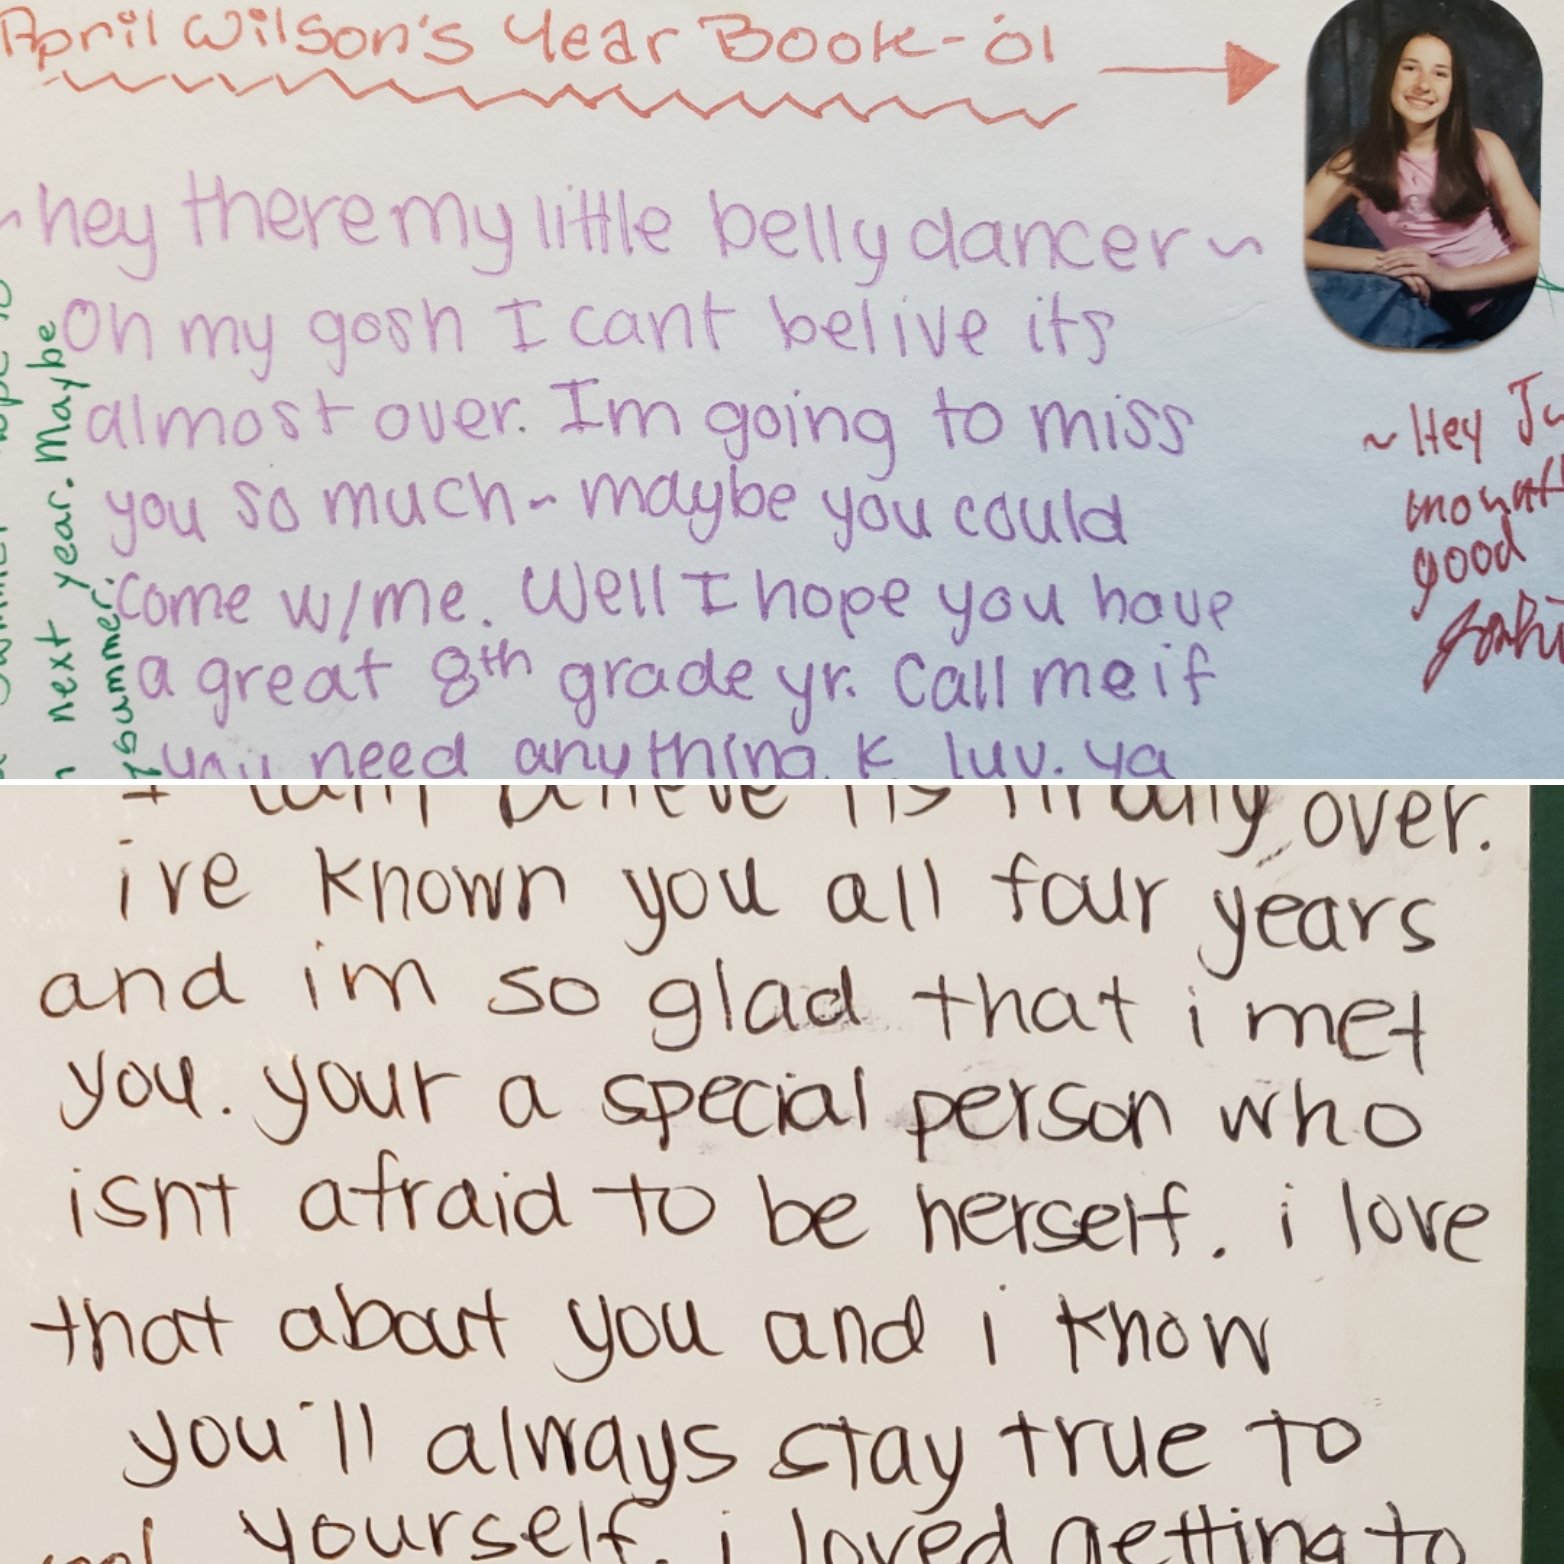 April Wilson's Year Book-'01
~hey there my little belly dancer~
Oh my gosh I cant belive its
almost over. Im going to miss
you so much~ maybe you could
come w/me. Well I hope you have
a great 8th grade yr. Call me if
you need anything. K luv. ya
next year. Maybe
summer.
~Hey
good
over.
i've known you all four years
and im so glad that i met
you. your a special person who
isnt afraid to be herself. i love
that about you and i know
you'll always stay true to
yourself. i loved getting to